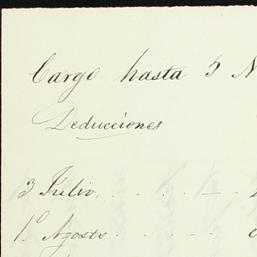 Cargo hasta 5 N
Deducciones
3 Julio
1º Agosto